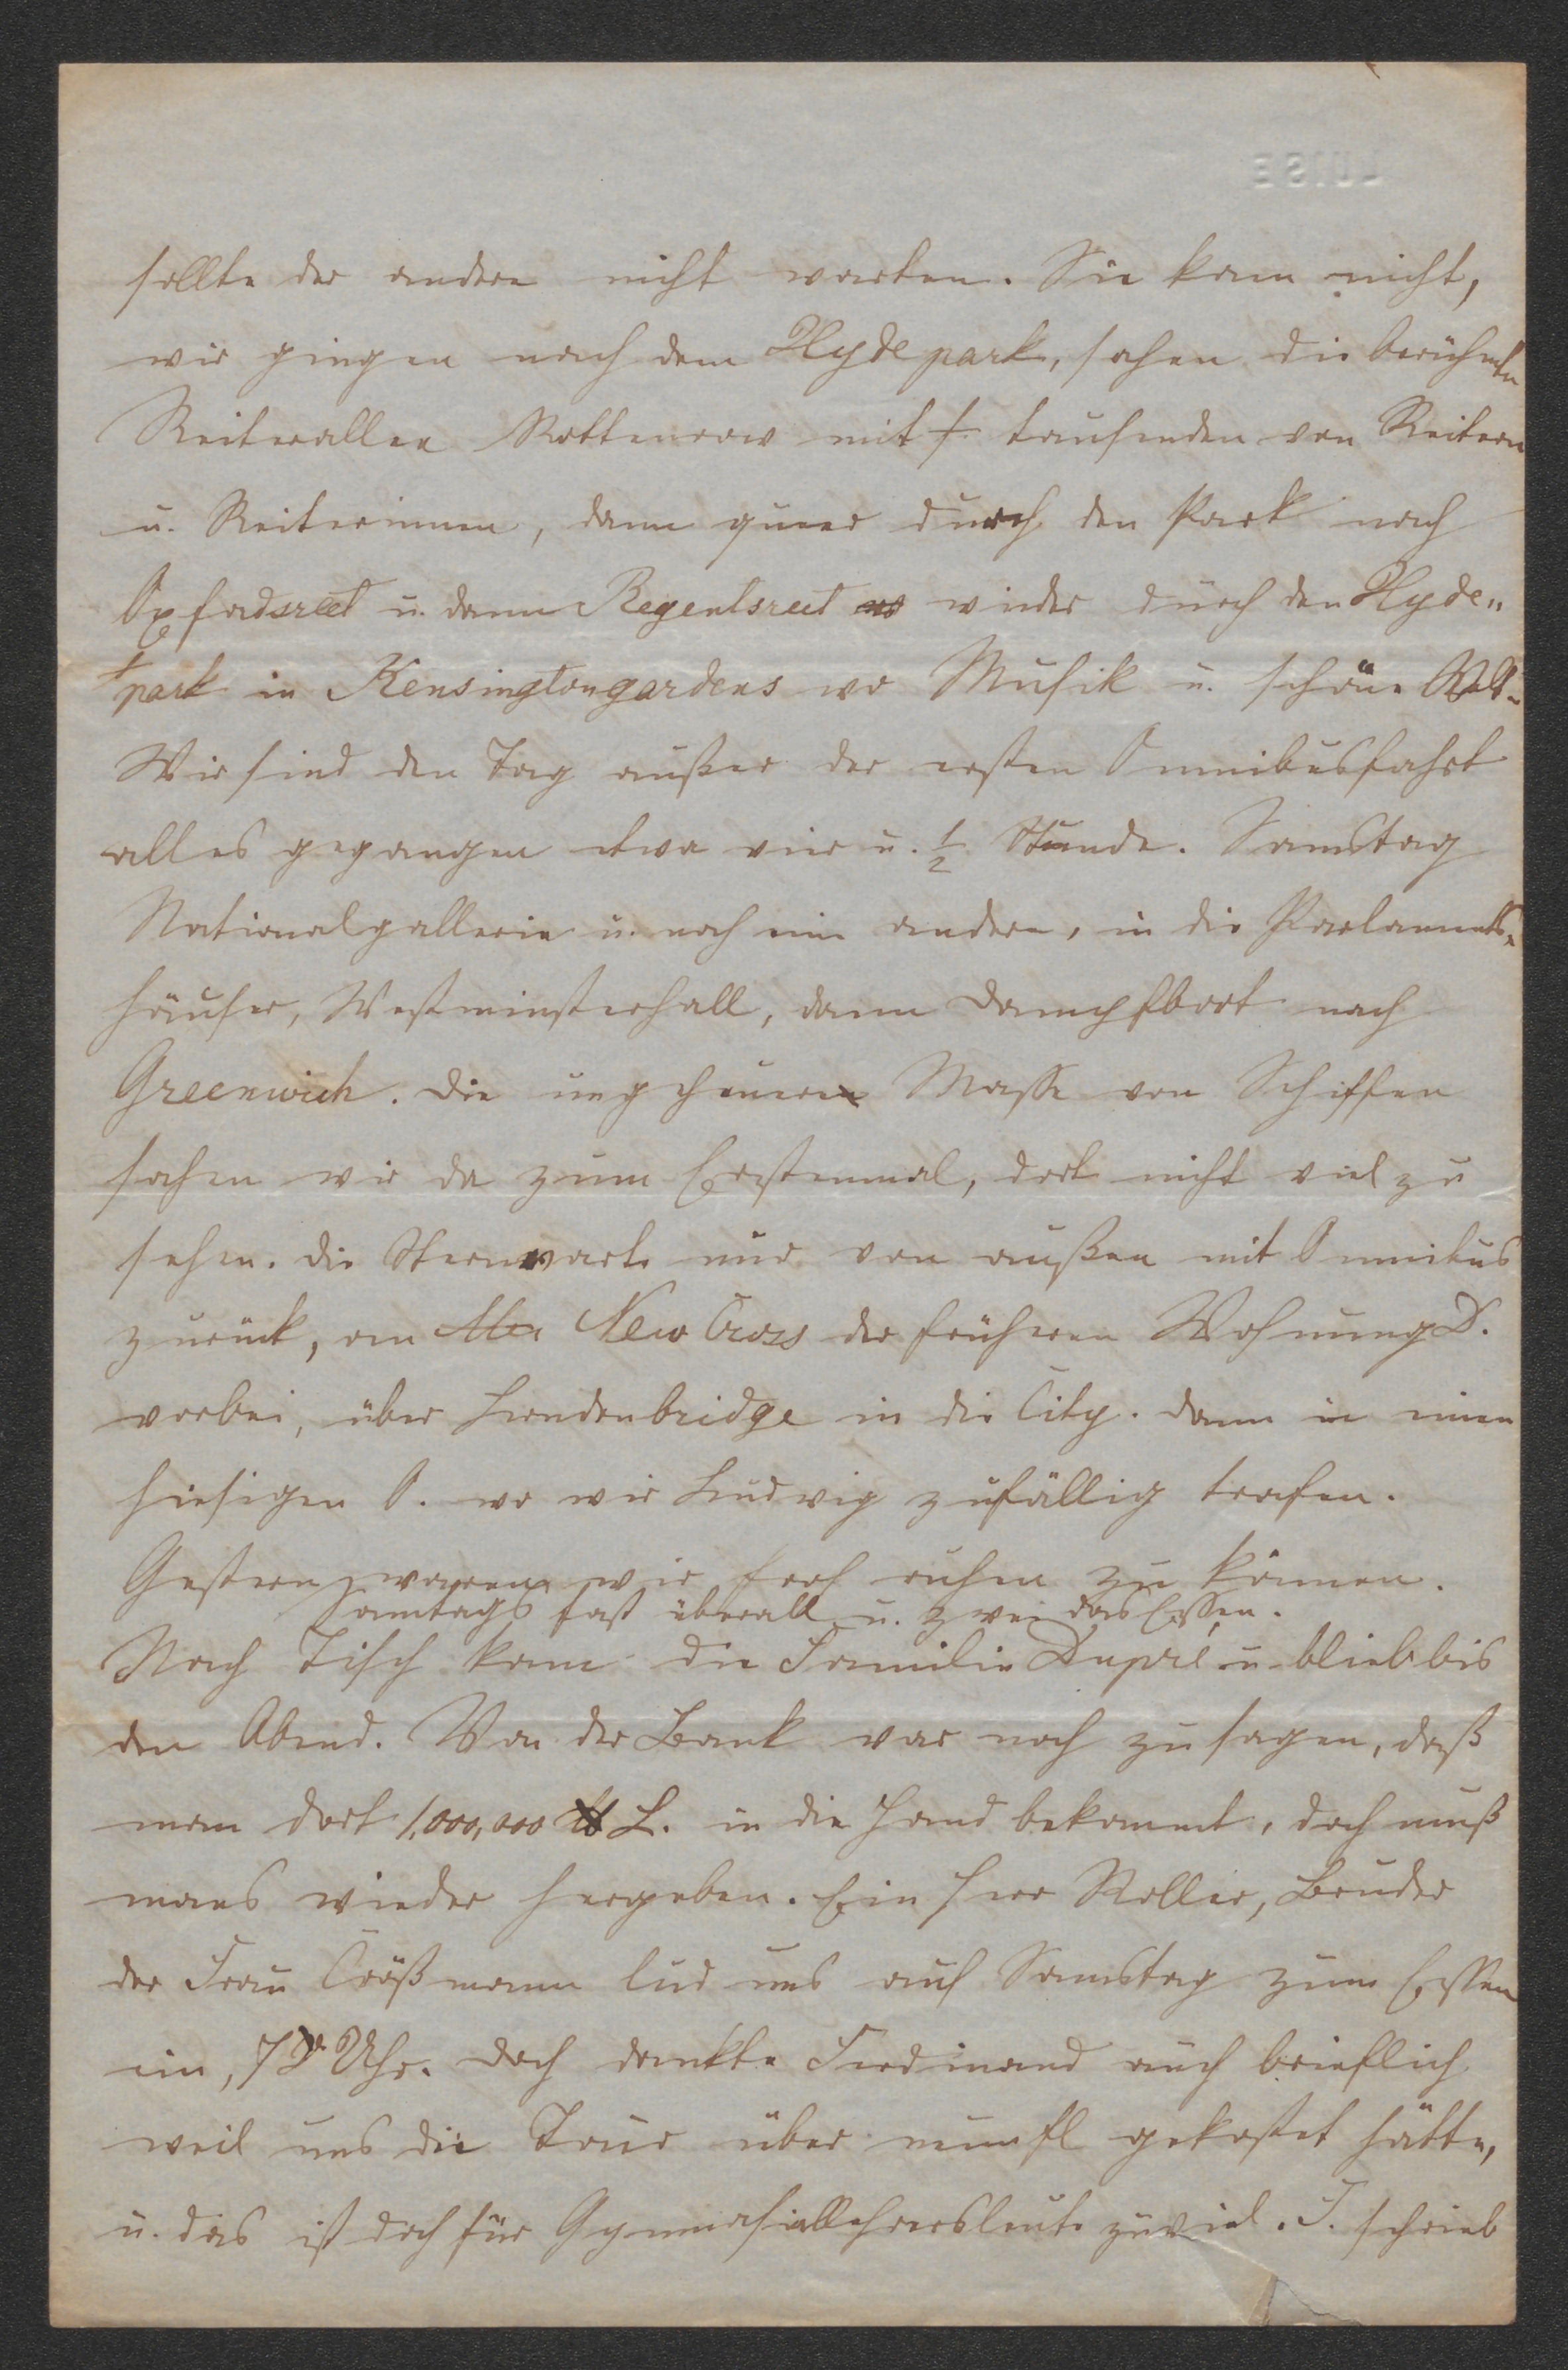 LUISE
sollte der andere nicht warten. Sie kam nicht,
wir gingen nach dem Hydepark, sahen die berühmte
Reiterallee Rottenrow mit tausenden von Reitern
u. Reiterinnen, dann queer durch den Park nach
Oxfordsreet u. dann Regentsreet wieder durch den Hyde„
park in Kensingtongardens wo Musik u. schöne Welt.
Wir sind den Tag außer der ersten Omnibusfahrt
alles gegangen etwa vier u. ½ Stunde. Samstag
Nationalgallerie u. noch eine andere, in die Parlaments„
häuser, Westminsterhall, dann Dampfboot nach
Greenwich. Die ungeheuere Masse von Schiffen
sahen wir da zum Erstenmal, dort nicht viel zu
sehen. Die Sternwarte nur von außen mit Omnibus
zurück, am New Cross der früheren Wohnung D.
vorbei, über Londonbridge in die City. Dann in einen
hiesigen O. wo wir Ludwig zufällig trafen.
Gestern waren wir froh ruhen zu können.
Sonntags fast überall u. zwei das Essen.
Nach Tisch kam die Familie Dupré u. blieb bis
den Abend. Von der Bank war noch zu sagen, daß
man dort 1,000,000 L. in die Hand bekommt, doch muß
mans wieder hergeben. Ein Herr Roller, Bruder
der Frau Crößmann lud uns auf Samstag zum Essen
ein, 7 Uhr. Doch dankte Ferdinand auch brieflich
weil uns die Tour über neun fl gekostet hätte,
u. das ist doch für Gymnasiallehrersleute zuviel. F. schrieb